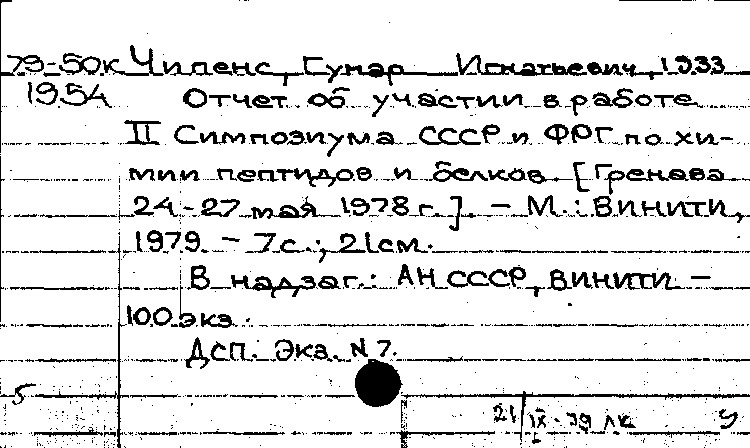 79-50к Чипенс, Гунар Игнатьевич, 1933
1954 Отчет об участии в работе
II Симпозиума СССР и ФРГ по хи-
мии пептидов и белков. [Гренава
24-27 мая 1978 г.]. - М.: ВИНИТИ,
1979. - 7 с.; 21 см.
В надзаг.: АН СССР, ВИНИТИ -
100 экз.
Дсп. Экз. N 7.
5
21/IX-79 лк У